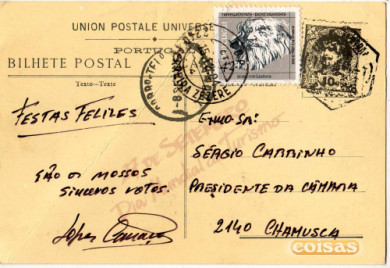 UNION POSTALE UNIVERSE
PORTUGAL
BILHETE POSTAL
Texto—Texte
FESTAS FELIZES
SÃO OS NOSSOS
SINCEROS VOTOS.
EXMO SR:
SÉRGIO CARRINHO
PRESIDENTE DA CÂMARA
2140 CHAMUSCA
27 DE SETEMBRO
Dia Mundial do Turismo
ZEZERE
10
coisas